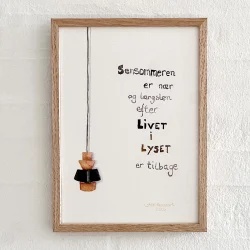 Sensommeren
er nær
og længslen
efter
LIVET
i
LYSET
er tilbage